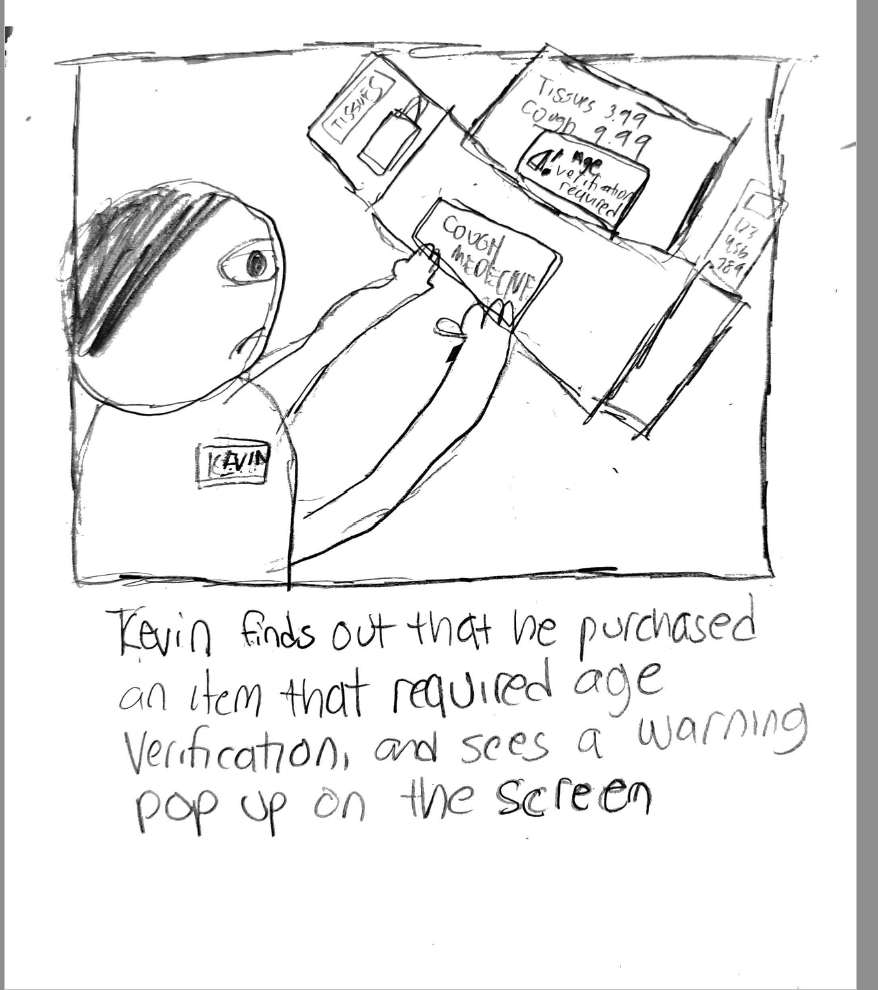 TISSUES
Tissues 3.99
Cough 9.99
! Age
verification
required
COUGH
MEDECINE
123
456
789
KEVIN
Kevin finds out that he purchased
an item that required age
Verification, and sees a warning
pop up on the screen